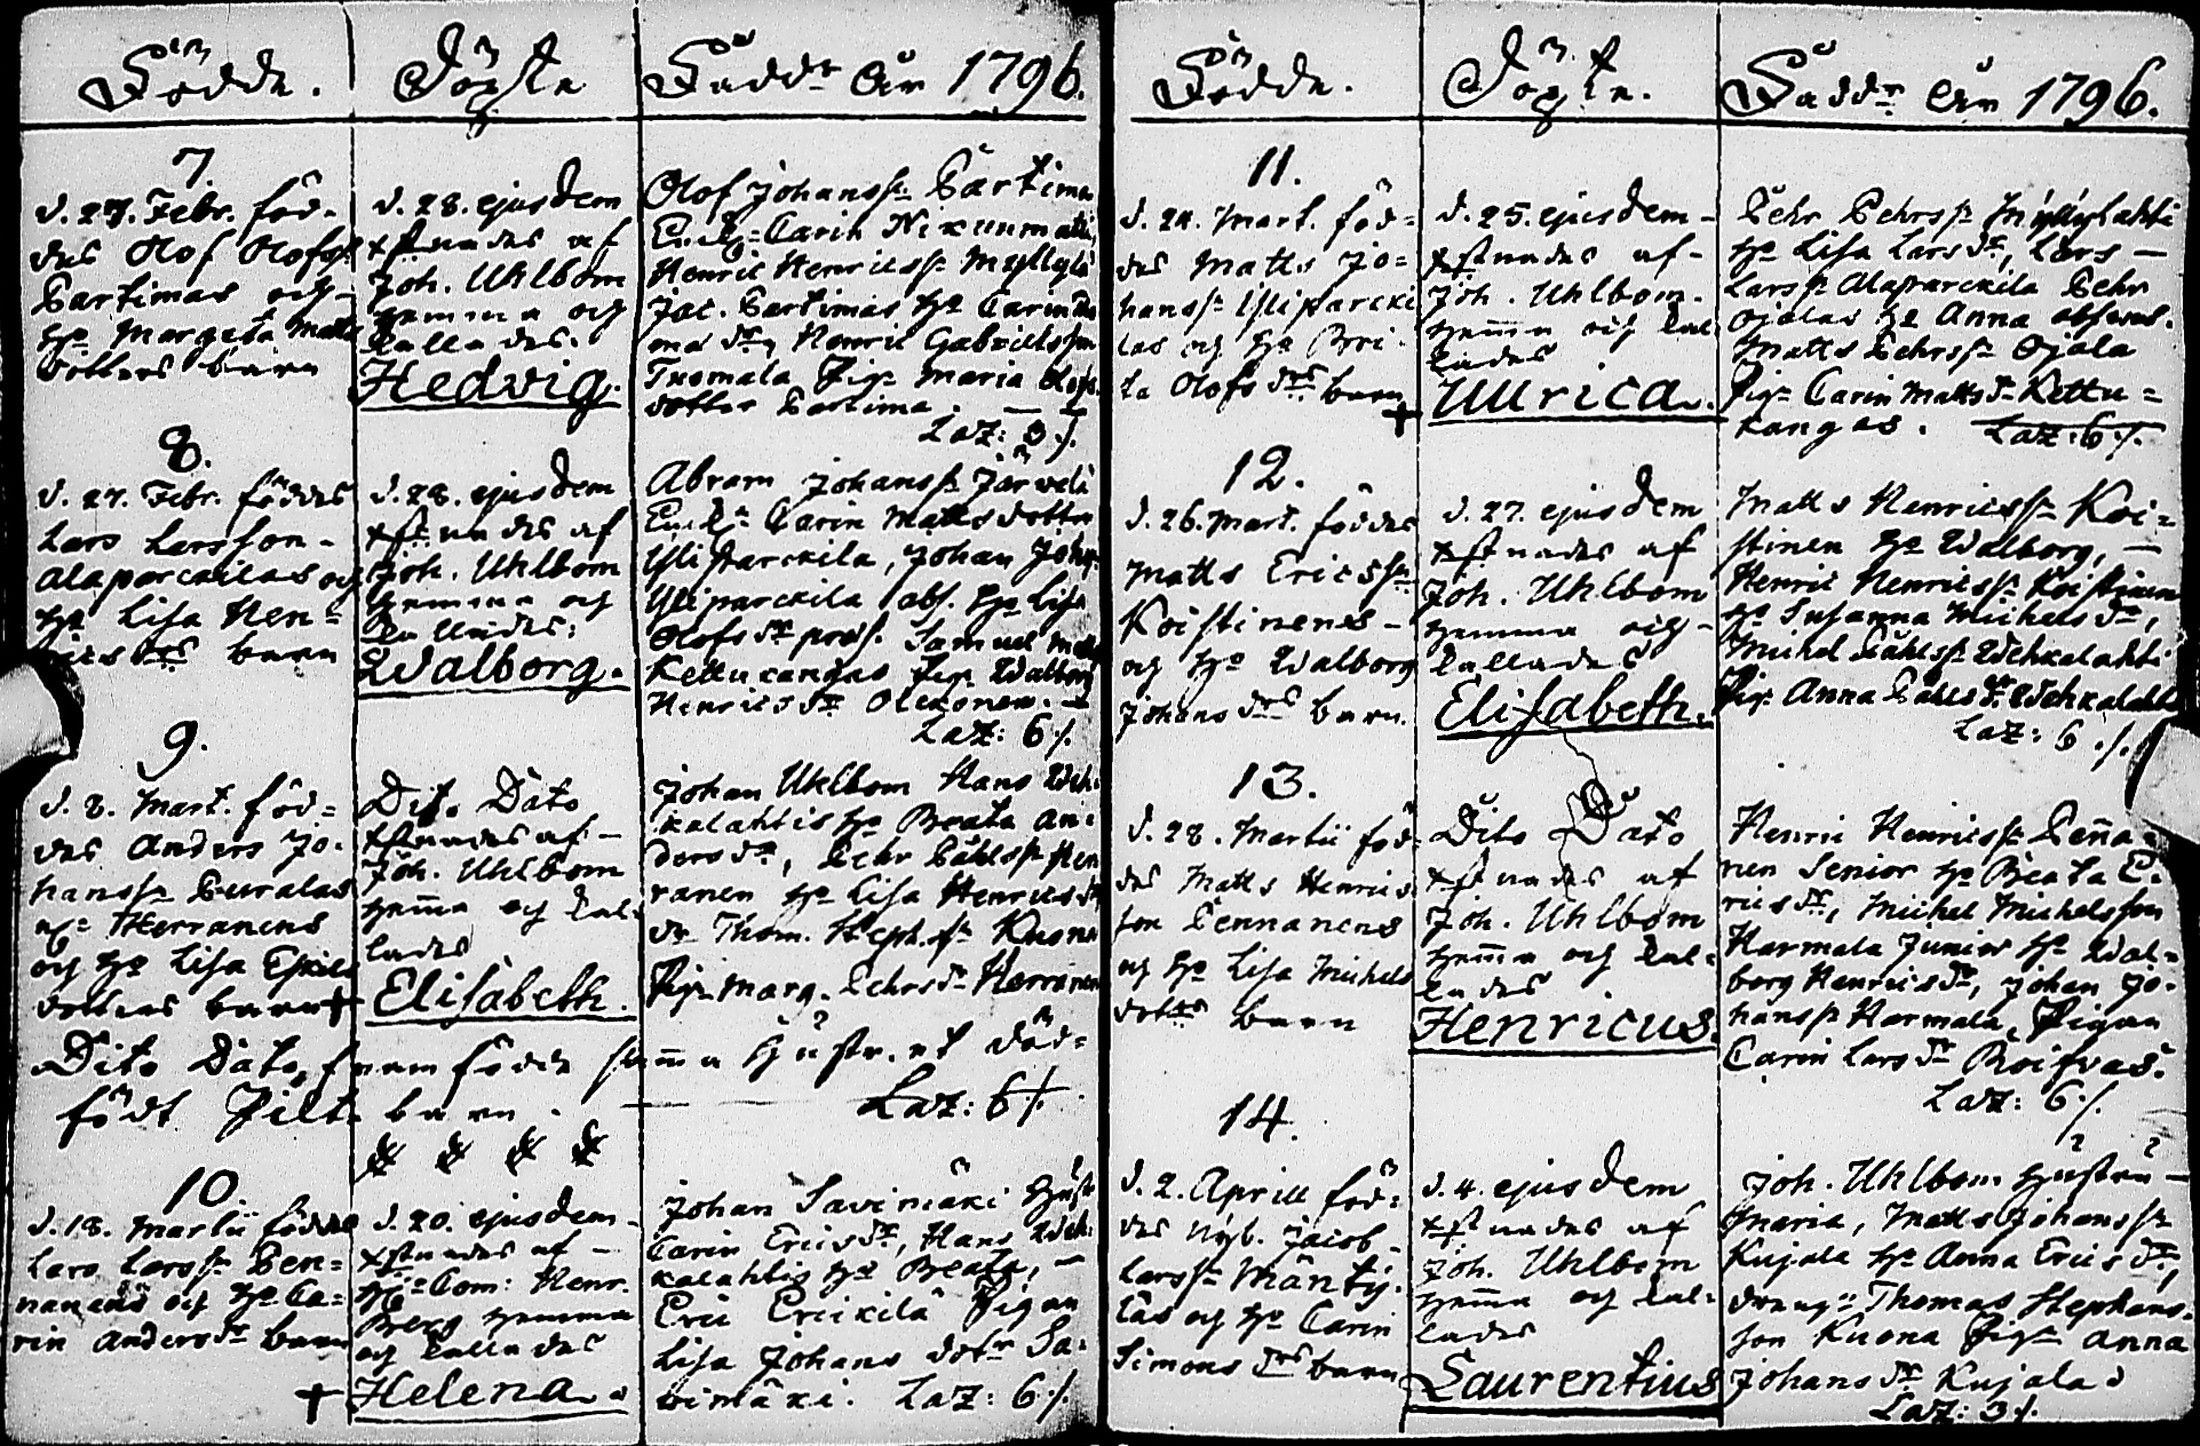 Födde.
Döpte
Fadd: År 1796.
7.
d. 27. Febr. föd-
des Olof Olofss:
Partimas och
h: Margeta Matts
dotters barn
d. 28. ejusdem
xstnades af
Joh. Uhlbom
hemma och
kallades.
Hedvig.
Olof Johanss: Partima
Carin Nikunmatti,
Henric Henricss: Myllylä
Jac. Partimas h:
Henric Gabrielsson
Tuomala Pig: Maria Olofs
dotter Partima.
Laz: 3 ./.
8.
d. 27. Febr. föddes
Lars Larsson
Alaparckilas och
h: Lisa Hen-
rics drs barn
d. 28. ejusdem
xstnades af
Joh. Uhlbom
hemma och
kallades:
Walborg.
Abram Johanss: Järvelä
Carin Mattsdotter
Yliparckila, Johan Johs:
Yliparckila abs. h: Lisa
Olofs dr præs. Samuel Matts
Kettukangas Pig: Walborg
Henrics dr Olckonen.
Laz: 6 ./.
9.
d. 8. Mart. föd=
des Anders Jo-
hanss: Puralas
Herranens
och h: Lisa Eskils
dotters barn +
Dito Dato
xstnades af
Joh. Uhlbom
hema och kal-
lades
Elisabeth.
Johan Uhlbom Hans Weh-
kalahtis h: Beata An-
ders dr, Pehr Påhlss: Her
ranen h: Lisa Henrics dr
dr Thom. Steph. s: Kuona
Pig: Marg. Pehrs dr Herranen
Dito Dato, framfödde sama Hustr. et död=
födt Pilt barn.
Laz: 6 ./.
10.
d. 18. Martii föddes
Lars Larss: Pen=
nanens och h: Ca=
rin Anders dr barn
+
d. 20. ejusdem
xstnades af
Com: Henr.
Berg hemma
och kallades
Helena.
Johan Savimäki Hust
Carin Erics dr, Hans Weh
kalahtis h: Beata,
Eric Erickilä Pigan
Lisa Johans dotr Sa-
vimäki. Laz: 6 ./.
Födde.
Döpte.
Fadd: År 1796.
11.
d. 24. Mart. föd=
des Matts Jo=
hanss: Yliparcki
las och h: Bri-
ta Olofs drs barn
+
d. 25. ejusdem
xstnades af
Joh. Uhlbom.
hema och kal-
lades
Ullrica.
Pehr Pehrss: Myllylahti
h: Lisa Lars dr, Lars
Larss: Alaparckila Pehr
Ojalas h: Anna
Matts Pehrss: Ojala
Pig: Carin Matts dr Kettu=
kangas. Laz: 6 ./.
12.
d. 26. Mart. föddes
Matts Ericss:
Koistinens
och h: Walborg
Johans drs barn.
d. 27. ejusdem
xstnades af
Joh. Uhlbom
hemma och
kallades
Elisabeth.
Matts Henricss: Koi=
stinen h: Walborg,
Henric Henricss: Koistinen
h: Susanna Michels dr,
Michel Påhlss: Wehkalahti
Pig: Anna Påhls dr Wehkalahti
Laz: 6 ./.
13.
d. 28. Martii föd-
des Matts Henrics
son Pennanens
och h: Lisa Michels
dotrs barn
Dito Dato
xstnades af
Joh. Uhlbom
hema och kal-
lades
Henricus.
Henric Henricss: Penna=
nen Senior h: Beata E-
rics dr, Michel Michelsson
Harmala Junior h: Wal=
borg Henrics dr, Johan Jo-
hanss: Harmala, Pigan
Carin Lars dr Roisvas.
Laz: 6 ./.
14.
d. 2. Aprill föd-
des Nyb. Jacob
Larss: Mänty-
läs och h: Carin
Simons drs barn
d. 4. ejusdem
xstnades af
Joh. Uhlbom
hema och kal-
lades
Laurentius
Joh. Uhlbom hustru
Maria, Matts Johanss:
Kujala h: Anna Erics dr,
dreng: Thomas Stephans-
son Kuona Pig: Anna
Johans dr Kujala
Laz: 3 ./.